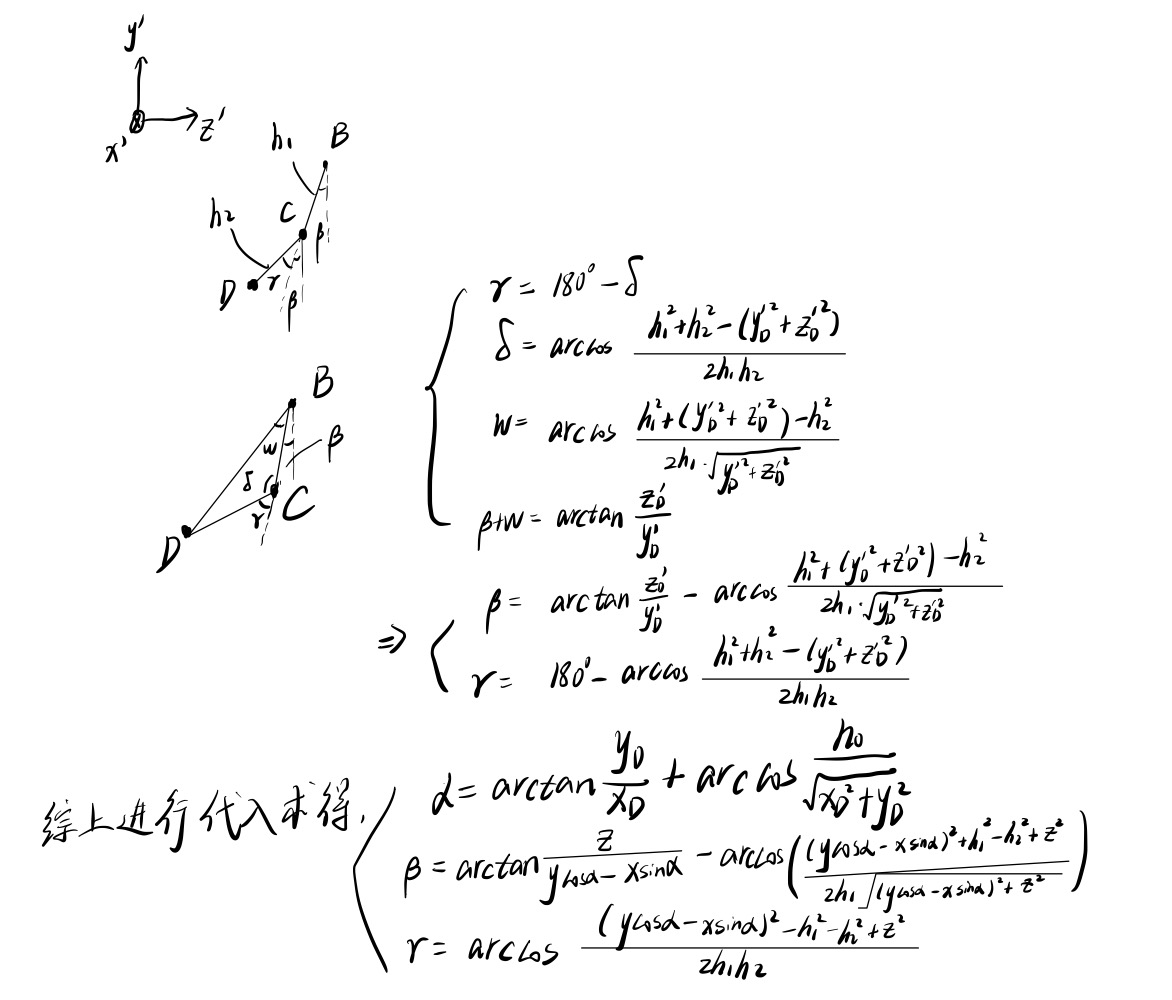 y'
z'
x'
h₁
B
h₂
C
β
D
γ
β
γ = 180° - δ
δ = arccos (h₁² + h₂² - (y_D'² + z_D'²)) / (2h₁h₂)
B
w = arccos (h₁² + (y_D'² + z_D'²) - h₂²) / (2h₁·√(y_D'² + z_D'²))
w
β
δ
C
γ
D
β+w = arctan z_D'/y_D'
β = arctan z_D'/y_D' - arccos (h₁² + (y_D'² + z_D'²) - h₂²) / (2h₁·√(y_D'² + z_D'²))
⇒
γ = 180° - arccos (h₁² + h₂² - (y_D'² + z_D'²)) / (2h₁h₂)
α = arctan y_D/x_D + arccos h₀/√(x_D² + y_D²)
综上进行代入求得,
β = arctan z/(ycosα - xsinα) - arccos(((ycosα - xsinα)² + h₁² - h₂² + z²) / (2h₁√((ycosα - xsinα)² + z²)))
γ = arccos ((ycosα - xsinα)² - h₁² - h₂² + z²) / (2h₁h₂)